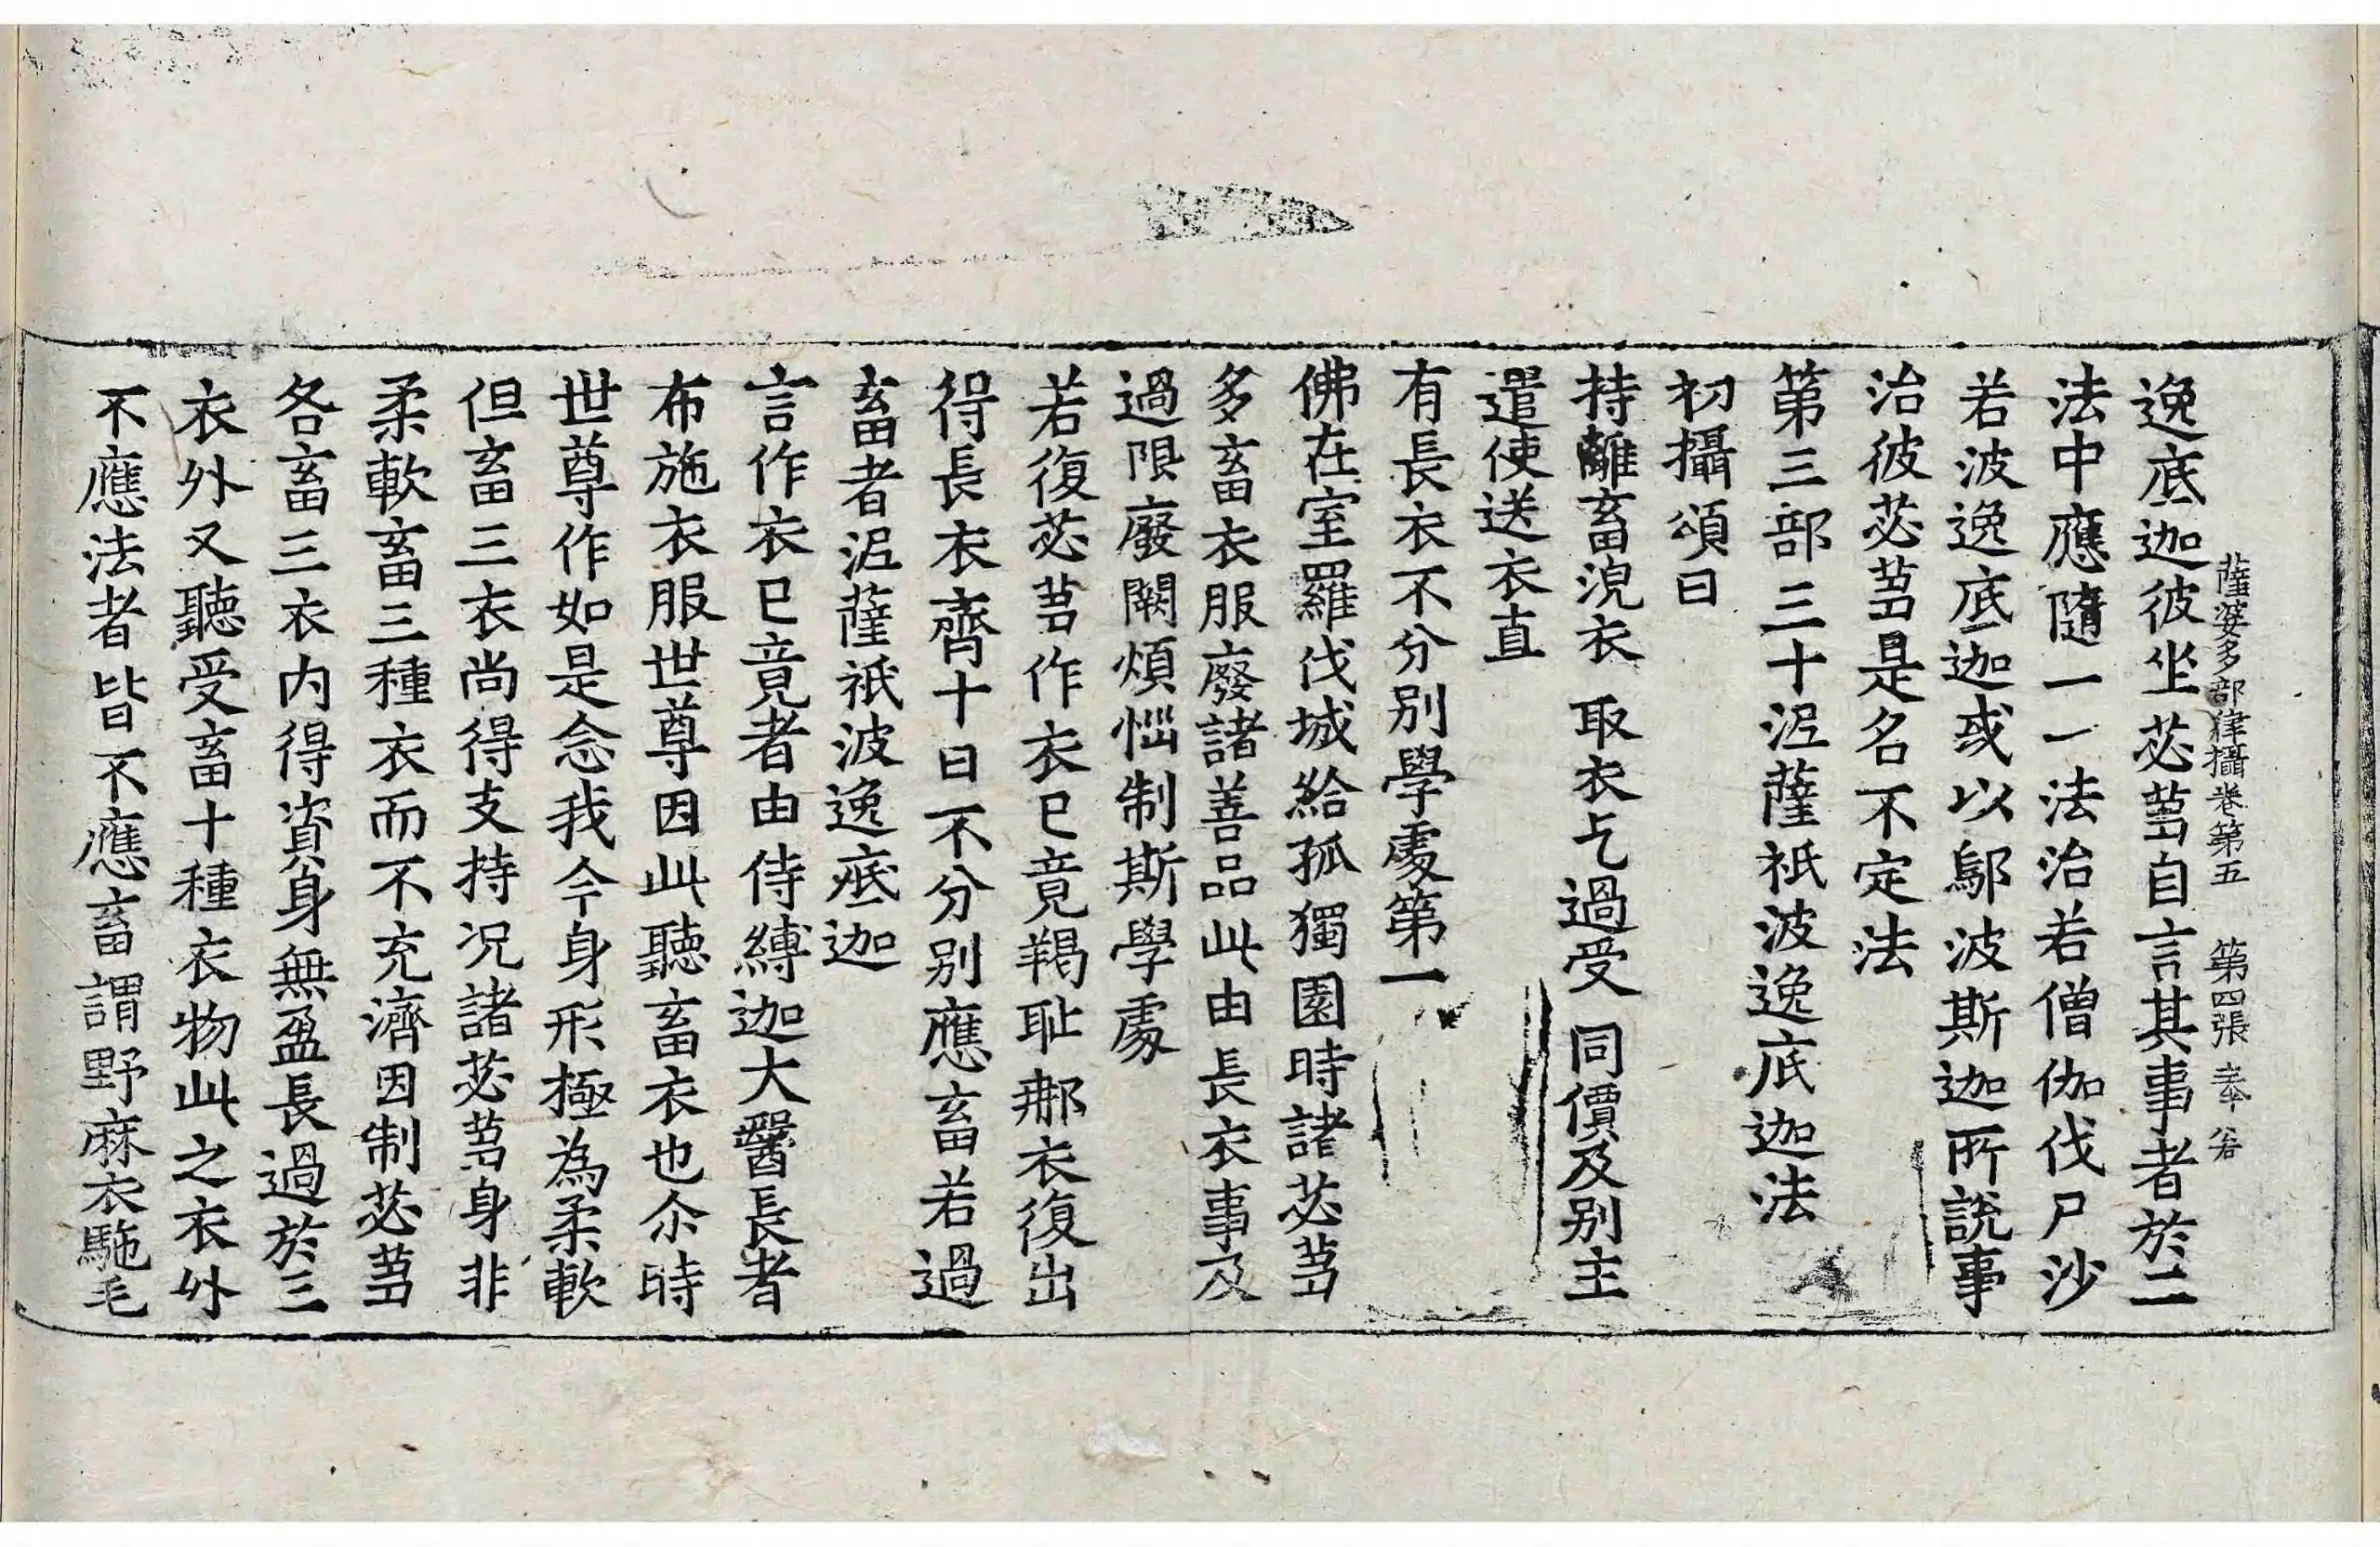 薩婆多部律攝卷第五 第四張 奉
逸底迦彼坐苾芻自言其事者於二
法中應隨一一法治若僧伽伐尸沙
若波逸底迦或以鄔波斯迦所說事
治彼苾芻是名不定法
第三部三十泥薩祇波逸底迦法
初攝頌曰
持離畜浣衣 取衣乞過受 同價及別主
遣使送衣直
有長衣不分別學處第一
佛在室羅伐城給孤獨園時諸苾芻
多畜衣服廢諸善品此由長衣事及
過限廢闕煩惱制斯學處
若復苾芻作衣已竟羯耻那衣復出
得長衣齊十日不分別應畜若過
畜者泥薩祇波逸底迦
言作衣已竟者由侍縛迦大醫長者
布施衣服世尊因此聽畜衣也尒時
世尊作如是念我今身形極為柔軟
但畜三衣尚得支持況諸苾芻身非
柔軟畜三種衣而不充濟因制苾芻
各畜三衣内得資身無盈長過於三
衣外又聽受畜十種衣物此之衣外
不應法者皆不應畜謂野麻衣駞毛